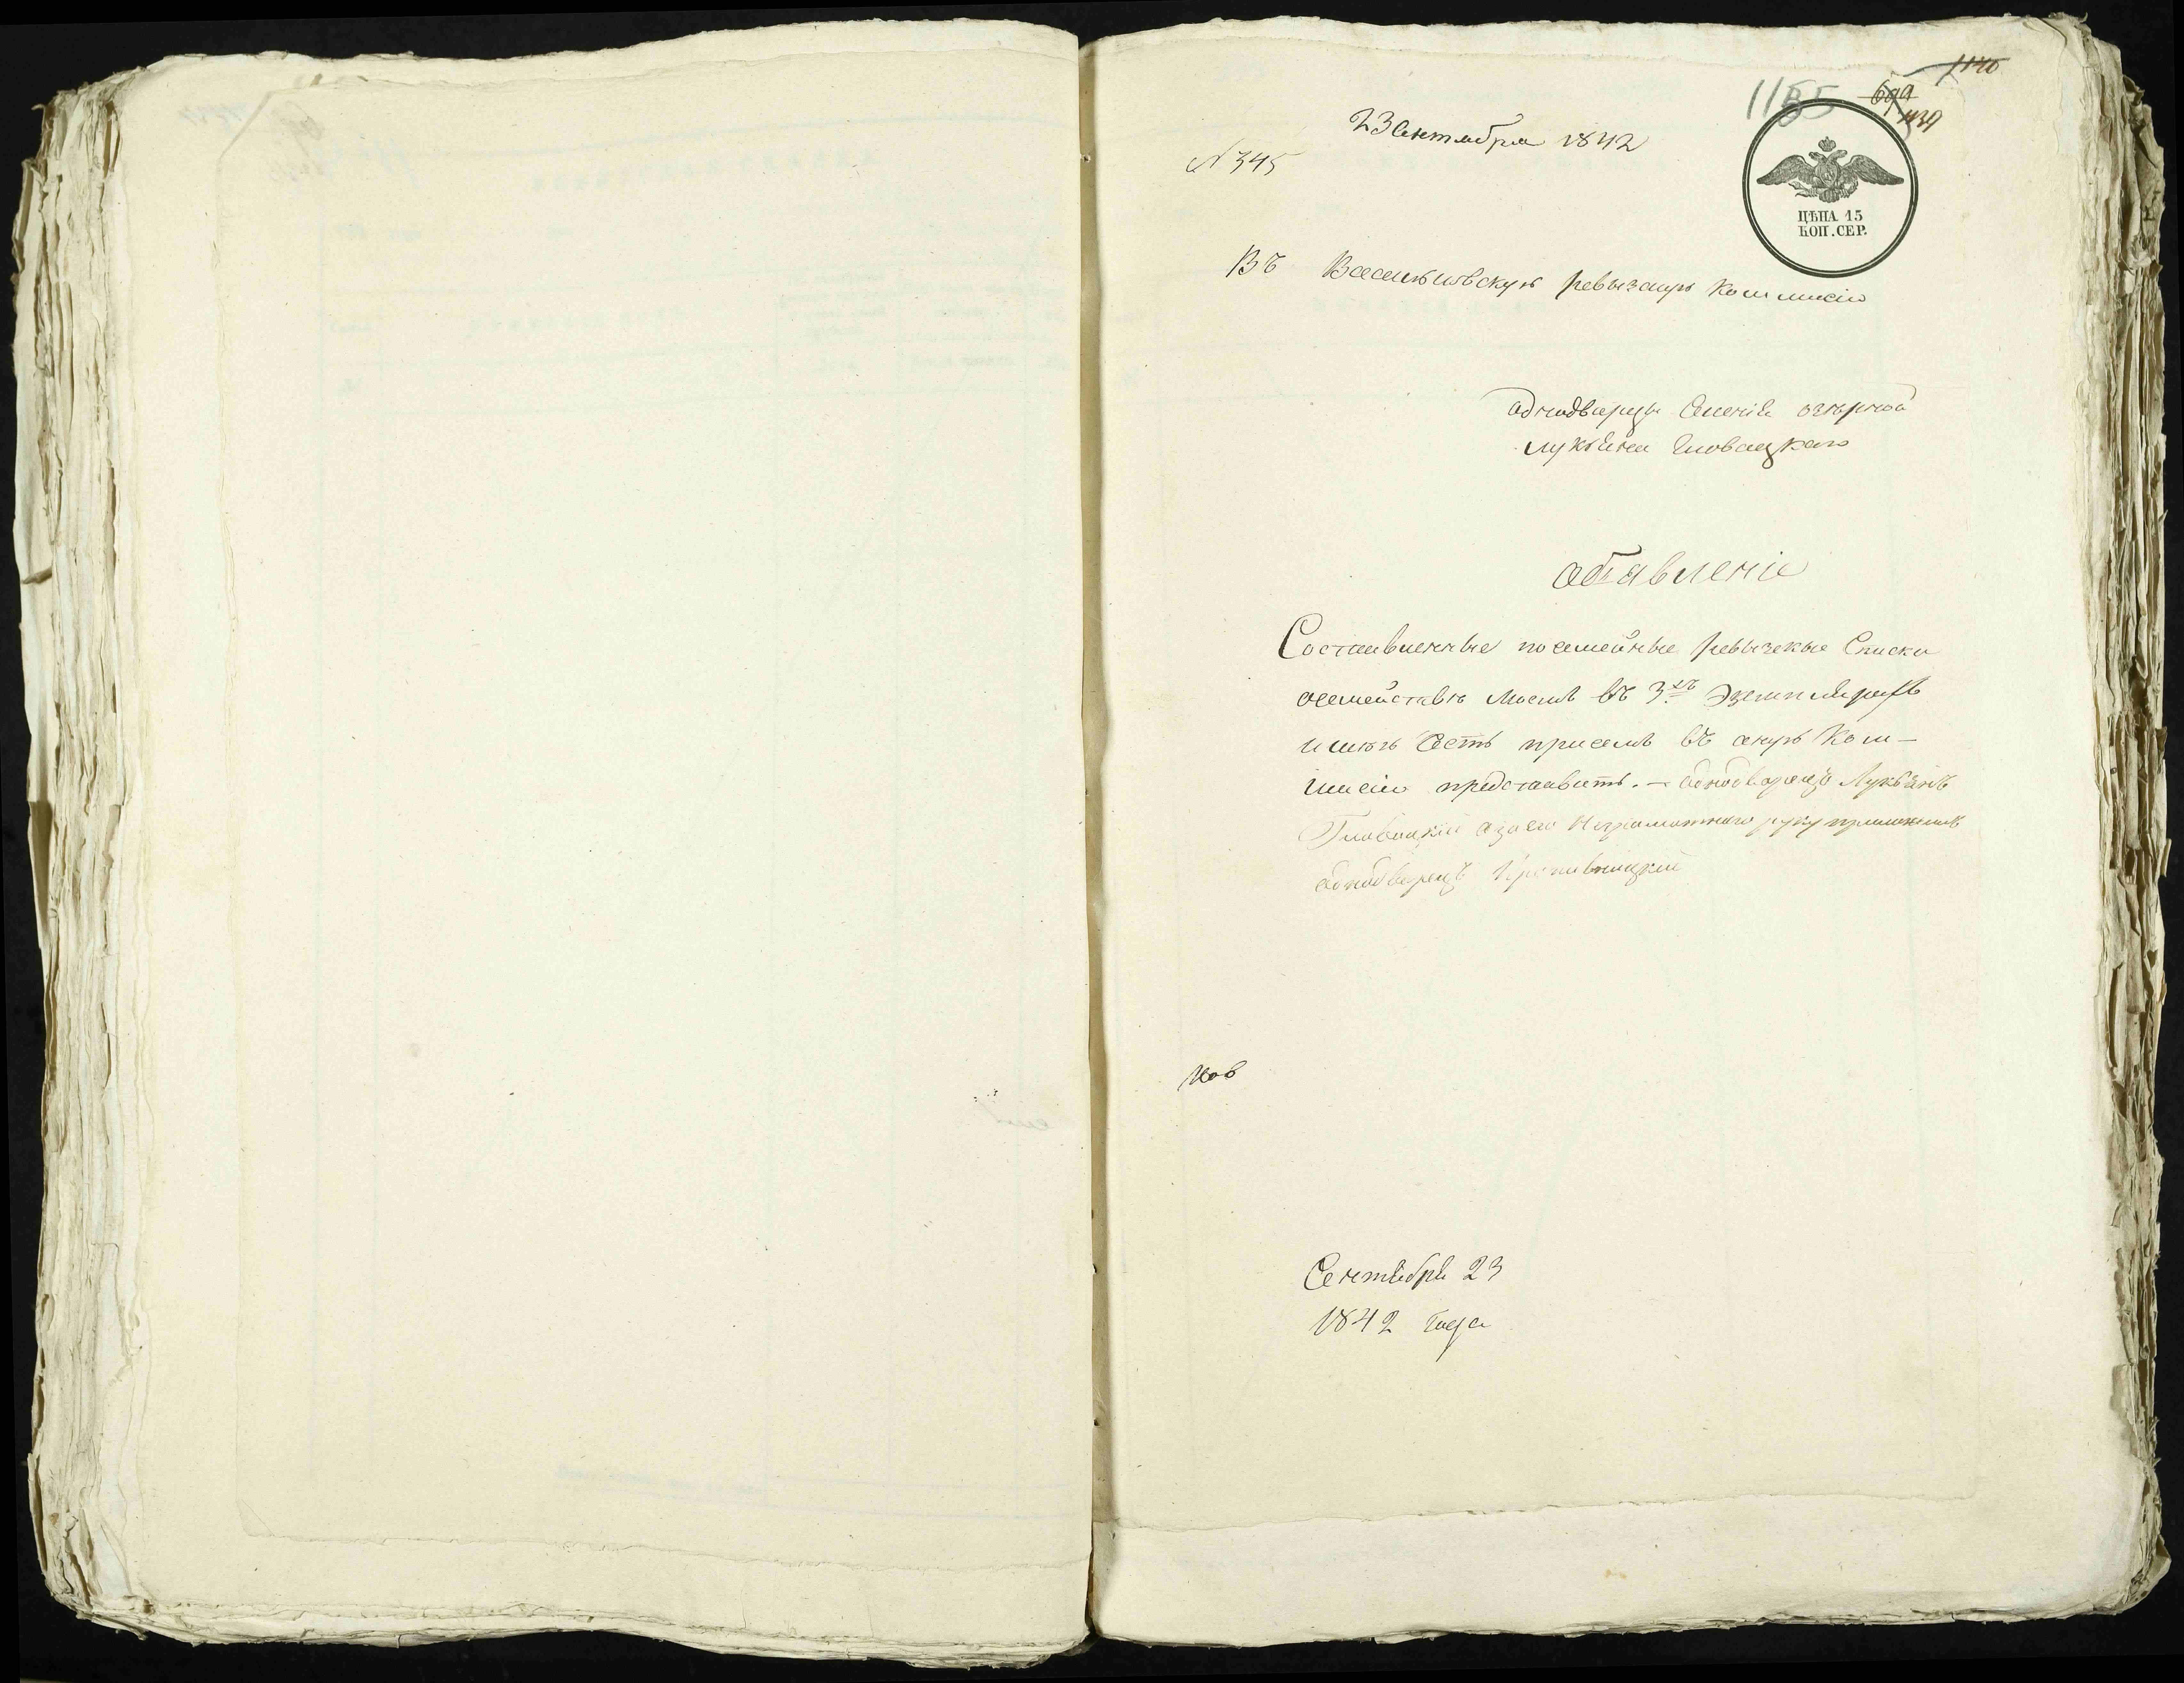 1185
23 Сентября 1842
№ 345
ЦѢНА 15
КОП. СЕР.
Въ Васильковскую ревызкую Коммисію
однодворца Селенія
Лукьяна Гловацкаго
Обявленіе
Составленные посемейные ревызскые Списки
осемействѣ Моемъ въ 3хъ Экземплярахъ
имѣю Честь присемъ въ оную Ком-
мисію представить. — однодворецъ Лукьянъ
Гловацкій азаего Неграмотнаго руку приложилъ
однодворецъ Кропивницкій
Сентября 23
1842 Года